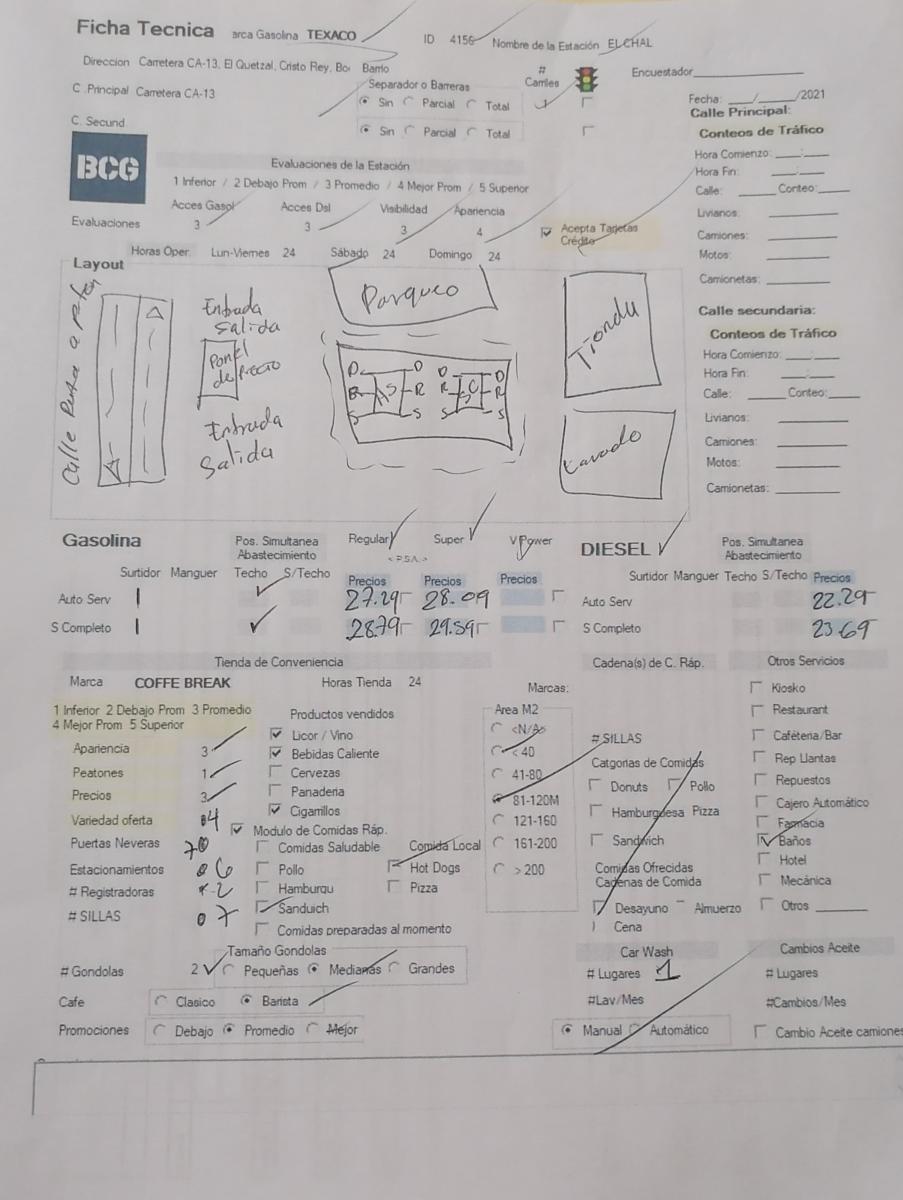 Ficha Tecnica arca Gasolina TEXACO ID 4156 Nombre de la Estación EL CHAL
Direccion Carretera CA-13, El Quetzal, Cristo Rey, Bo Barrio
# Carriles
Encuestador
C .Principal Carretera CA-13
Separador o Barreras
Sin Parcial Total
Fecha: ___/___/2021
C. Secund
Sin Parcial Total
Calle Principal:
Conteos de Tráfico
BCG
Evaluaciones de la Estación
1 Inferior / 2 Debajo Prom / 3 Promedio / 4 Mejor Prom / 5 Superior
Hora Comienzo: ___:___
Hora Fin: ___:___
Calle: ___ Conteo:___
Acces Gasol Acces Dsl Visibilidad Apariencia
Evaluaciones 3 3 3 4
Acepta Tarjetas Crédito
Livianos:
Camiones:
Motos:
Camionetas:
Horas Oper. Lun-Viernes 24 Sábado 24 Domingo 24
Layout
Parqueo
Entrada
Salida
Panel
de Precio
Entrada
Salida
Tienda
Lavado
D D D D
R R R
S S S S
AS SC
Calle secundaria:
Conteos de Tráfico
Hora Comienzo: ___:___
Hora Fin: ___:___
Calle: ___ Conteo:___
Livianos:
Camiones:
Motos:
Camionetas:
Gasolina Pos. Simultanea Abastecimiento Regular Super V Power DIESEL Pos. Simultanea Abastecimiento
Surtidor Manguer Techo S/Techo Precios Precios Precios Surtidor Manguer Techo S/Techo Precios
Auto Serv 1 27.29 28.09 Auto Serv 22.29
S Completo 1 28.79 29.59 S Completo 23.69
Tienda de Conveniencia Cadena(s) de C. Ráp. Otros Servicios
Marca COFFE BREAK Horas Tienda 24 Marcas:
1 Inferior 2 Debajo Prom 3 Promedio
4 Mejor Prom 5 Superior
Apariencia 3
Peatones 1
Precios 3
Variedad oferta 4
Puertas Neveras
Estacionamientos 6
# Registradoras 2
# SILLAS 07
Productos vendidos
Licor / Vino
Bebidas Caliente
Cervezas
Panaderia
Cigarrillos
Modulo de Comidas Ráp.
Comidas Saludable Comida Local
Pollo Hot Dogs
Hamburgu Pizza
Sanduich
Comidas preparadas al momento
Area M2
<N/A>
< 40
41-80
81-120M
121-160
161-200
> 200
# SILLAS
Catgorias de Comidas
Donuts Pollo
Hamburguesa Pizza
Sandwich
Comidas Ofrecidas
Cadenas de Comida
Desayuno Almuerzo
Cena
Kiosko
Restaurant
Cafeteria/Bar
Rep Llantas
Repuestos
Cajero Automático
Farmacia
Baños
Hotel
Mecánica
Otros
Tamaño Gondolas
# Gondolas 2 Pequeñas Medianas Grandes
Cafe Clasico Barista
Promociones Debajo Promedio Mejor
Car Wash
# Lugares 1
#Lav/Mes
Manual Automático
Cambios Aceite
# Lugares
#Cambios/Mes
Cambio Aceite camiones